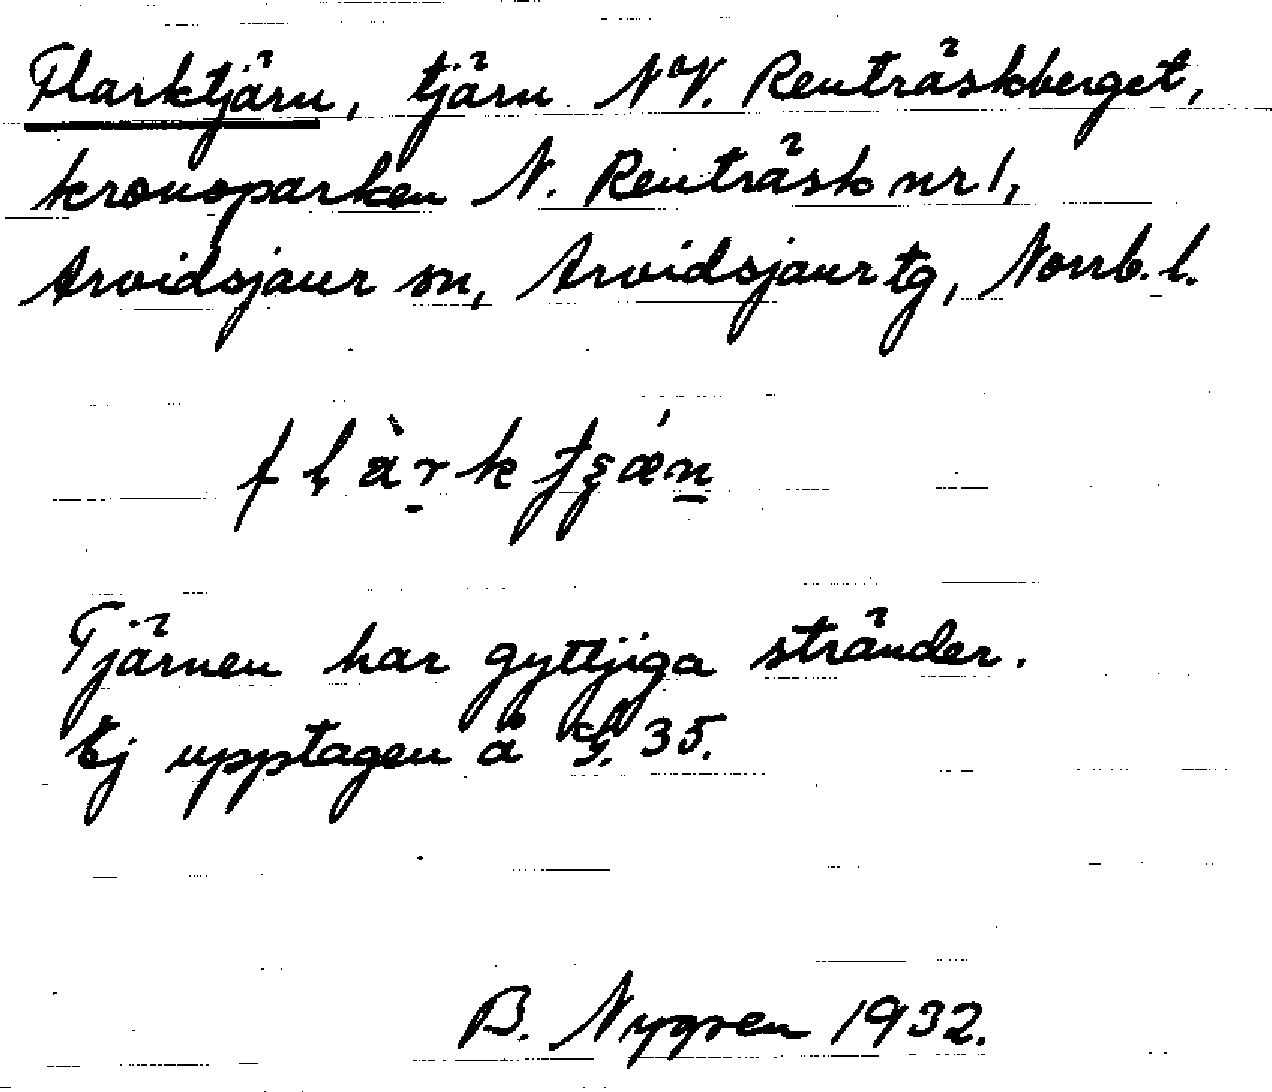 Flarktjärn, tjärn NV. Renträskberget,
kronoparken N. Renträsk nr 1,
Arvidsjaur sn, Arvidsjaur tg, Norrb. l.
Tjärnen har gyttjiga stränder.
Ej upptagen å G. 35.
B. Nygren 1932.